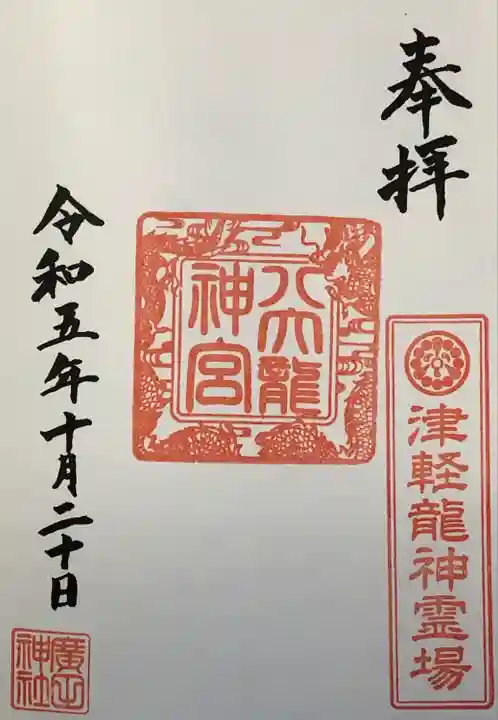 奉拝
津軽龍神霊場
八大龍
神宮
令和五年十月二十日
廣田
神社